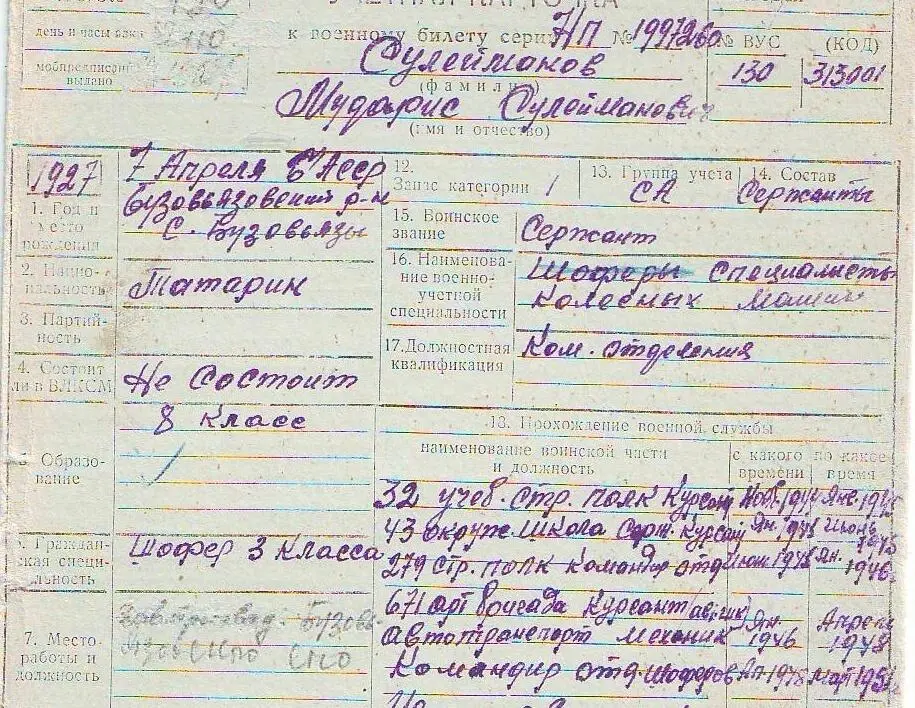 УЧЕТНАЯ КАРТОЧКА
к военному билету серии НП № 1997260
день и часы явки
мобпредписание выдано
Сулейманов
(фамилия)
Мударис Сулейманович
(имя и отчество)
№ ВУС (КОД)
130 313001
1927
1. Год и место рождения
7 Апреля БАССР
Бузовьязовский р-н
с. Бузовьязы
2. Национальность
Татарин
3. Партийность
4. Состоит ли в ВЛКСМ
Не состоит
5. Образование
8 класс
6. Гражданская специальность
Шофер 3 класса
7. Место работы и должность
12. Запас категории 1
13. Группа учета
СА
14. Состав
Сержанты
15. Воинское звание
Сержант
16. Наименование военно-учетной специальности
Шоферы специалисты
Колесных машин
17. Должностная квалификация
Ком. отделения
18. Прохождение военной службы
наименование воинской части и должность
с какого времени
по какое время
32 учеб. стр. полк Курсант
43 окруж. школа серж. Курсант
279 стр. полк командир отд
671 арт бригада Курсант
Янв. 1946
Апрель 1948
автотранспорт механик
Командир отд. шоферов